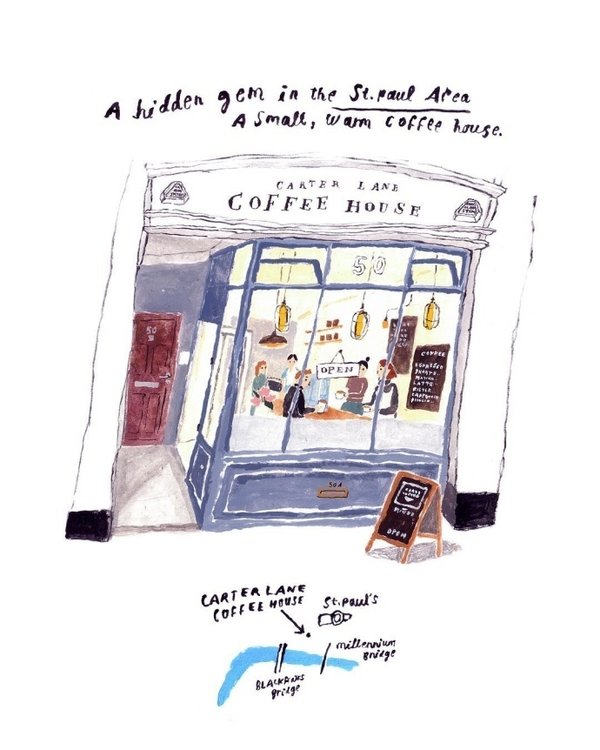 A hidden gem in the St.paul Area
A small, warm coffee house.
CARTER LANE
COFFEE HOUSE
50
50
OPEN
COFFEE
ESPRESSO
LATTE
50A
OPEN
CARTER LANE
COFFEE HOUSE
St.paul's
millennium
Bridge
BLACKFRIARS
Bridge